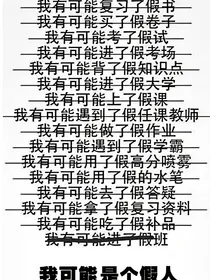 我有可能复习了假书
我有可能买了假卷子
我有可能考了假试
我有可能进了假考场
我有可能背了假知识点
我有可能进了假大学
我有可能上了假课
我有可能遇到了假任课教师
我有可能做了假作业
我有可能遇到了假学霸
我有可能用了假高分喷雾
我有可能用了假的水笔
我有可能去了假答疑
我有可能拿了假复习资料
我有可能吃了假补品
我有可能进了假班
我可能是个假人